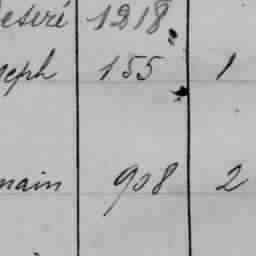 eseré 1218
seph 155 1
main 908 2